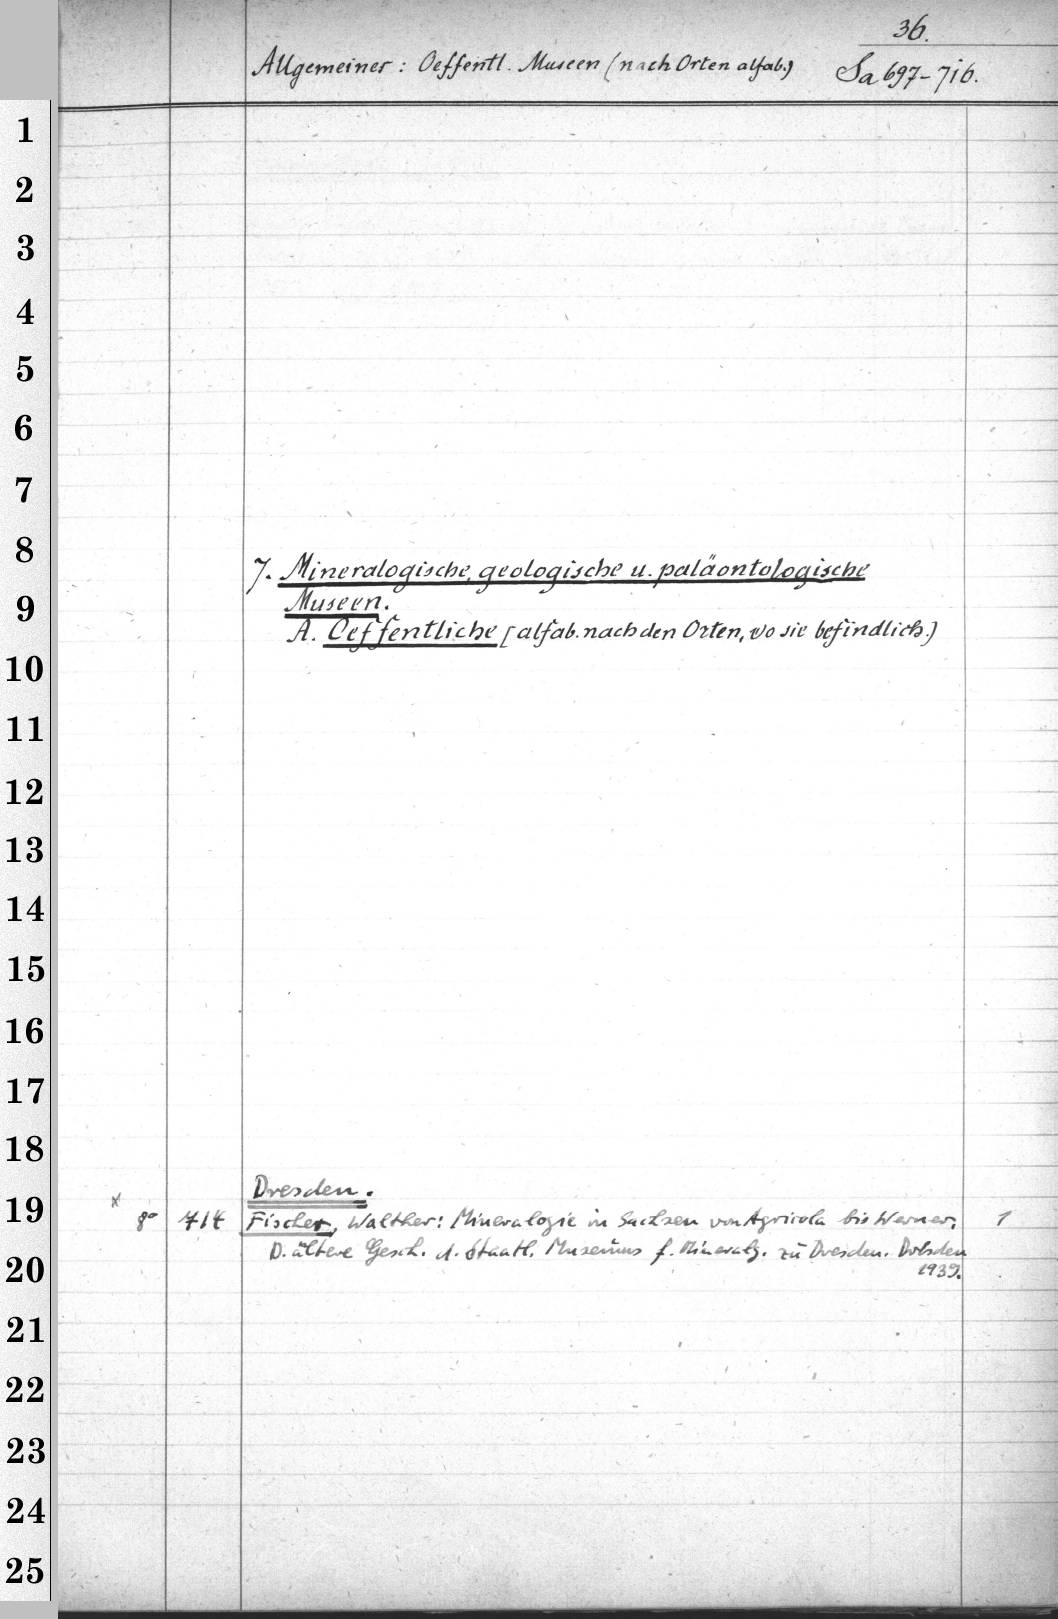 36.
Allgemeiner: Oeffentl. Museen (nach Orten alfab.) Sa 697-716.
1
2
3
4
5
6
7
8
7. Mineralogische, geologische u. paläontologische
9 Museen.
A. Oeffentliche [alfab. nach den Orten, wo sie befindlich.]
10
11
12
13
14
15
16
17
18
Dresden.
19 x 8° 714 Fischer, Walther: Mineralogie in Sachsen von Agricola bis Werner. 1
D. ältere Gesch. d. Staatl. Museums f. Mineralg. zu Dresden. Dresden
20 1939.
21
22
23
24
25